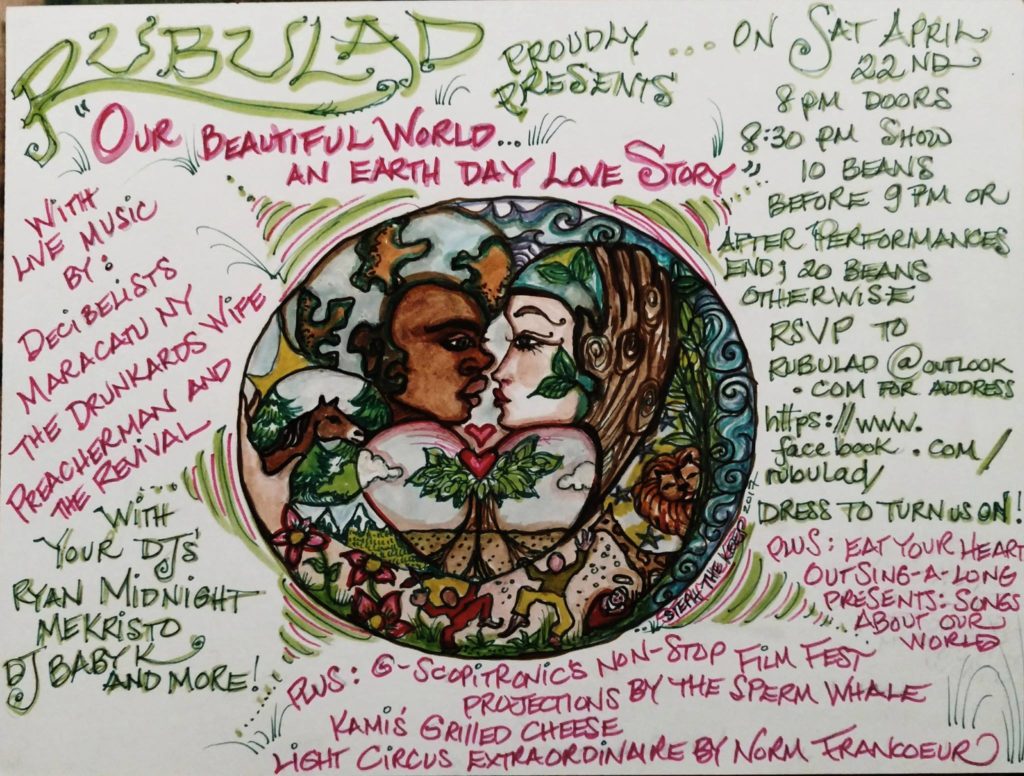 RUBULAD
PROUDLY
PRESENTS...
"OUR BEAUTIFUL WORLD...
AN EARTH DAY LOVE STORY"
ON SAT APRIL
22ND
8 PM DOORS
8:30 PM SHOW
10 BEANS
BEFORE 9 PM OR
AFTER PERFORMANCES
END; 20 BEANS
OTHERWISE
RSVP TO
RUBULAD@OUTLOOK
.COM FOR ADDRESS
https://www.
facebook.com/
rubulad/
DRESS TO TURN US ON!
PLUS: EAT YOUR HEART
OUT SING-A-LONG
PRESENTS: SONGS
ABOUT OUR
WORLD
WITH
LIVE MUSIC
BY:
DECIBELISTS
MARACATU NY
THE DRUNKARDS WIFE
PREACHERMAN AND
THE REVIVAL
WITH
YOUR DJS'
RYAN MIDNIGHT
MEKRISTO
DJ BABY K
AND MORE!
PLUS: G-SCOPITRONIC'S NON-STOP FILM FEST
PROJECTIONS BY THE SPERM WHALE
KAMI'S GRILLED CHEESE
LIGHT CIRCUS EXTRAORDINAIRE BY NORM FRANCOEUR
2017